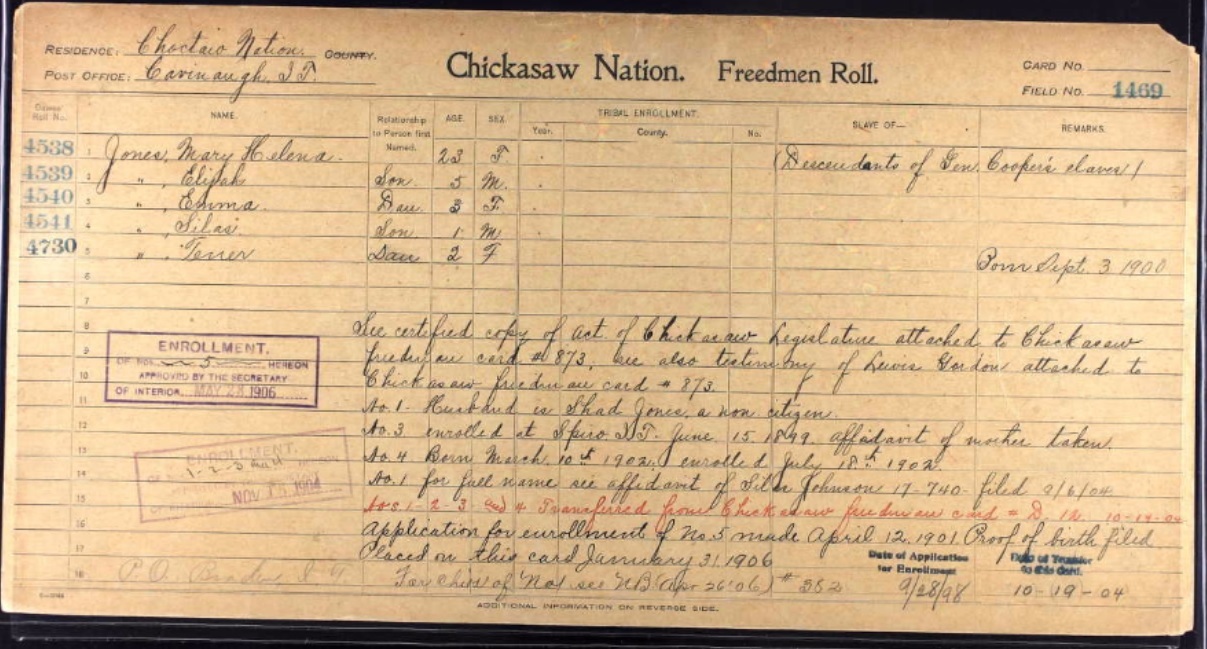 RESIDENCE: Choctaw Nation. COUNTY.
POST OFFICE: Cavinaugh, I.T.
Chickasaw Nation. Freedmen Roll.
CARD NO.
FIELD NO. 1469
Dawes Roll No.
NAME.
Relationship to Person first Named.
AGE.
SEX.
TRIBAL ENROLLMENT.
Year.
County.
No.
SLAVE OF—
REMARKS.
4538 1 Jones, Mary Helena. 23 F. (Descendants of Gen. Cooper's slaves)
4539 2 " , Elijah Son 5 M.
4540 3 " , Emma. Dau. 3 F.
4541 4 " , Silas. Son. 1 M
4730 5 " , Tener Dau 2 F Born Sept. 3 1900
6
7
8 See certified copy of act. of Chickasaw Legislature attached to Chickasaw
9 freedman card # 873, see also testimony of Lewis Gordon attached to
10 Chickasaw freedman card # 873.
11 No. 1 - Husband is Shad Jones, a non citizen.
12 No. 3 enrolled at Spiro I.T. June 15, 1899. affidavit of mother taken.
13 No. 4 Born March 10th 1902. enrolled July 18th 1902.
14 No. 1 for full name see affidavit of Silas Johnson 17-740- filed 9/6/04
15 Nos. 1-2-3 and 4 Transferred from Chickasaw freedman card # D. 12. 10-19-04
16 Application for enrollment of No. 5 made April 12, 1901. Proof of birth filed
17 Placed on this card January 31, 1906
18 P.O. For child of No 1 see NB (Apr 26'06) # 352
ENROLLMENT.
OF NOS. 5 HEREON
APPROVED BY THE SECRETARY
OF INTERIOR. MAY 28 1906
ENROLLMENT.
1-2-3 and 4 HEREON
NOV 1904
Date of Application for Enrollment
9/28/98
Date of Transfer to this Card.
10-19-04
ADDITIONAL INFORMATION ON REVERSE SIDE.